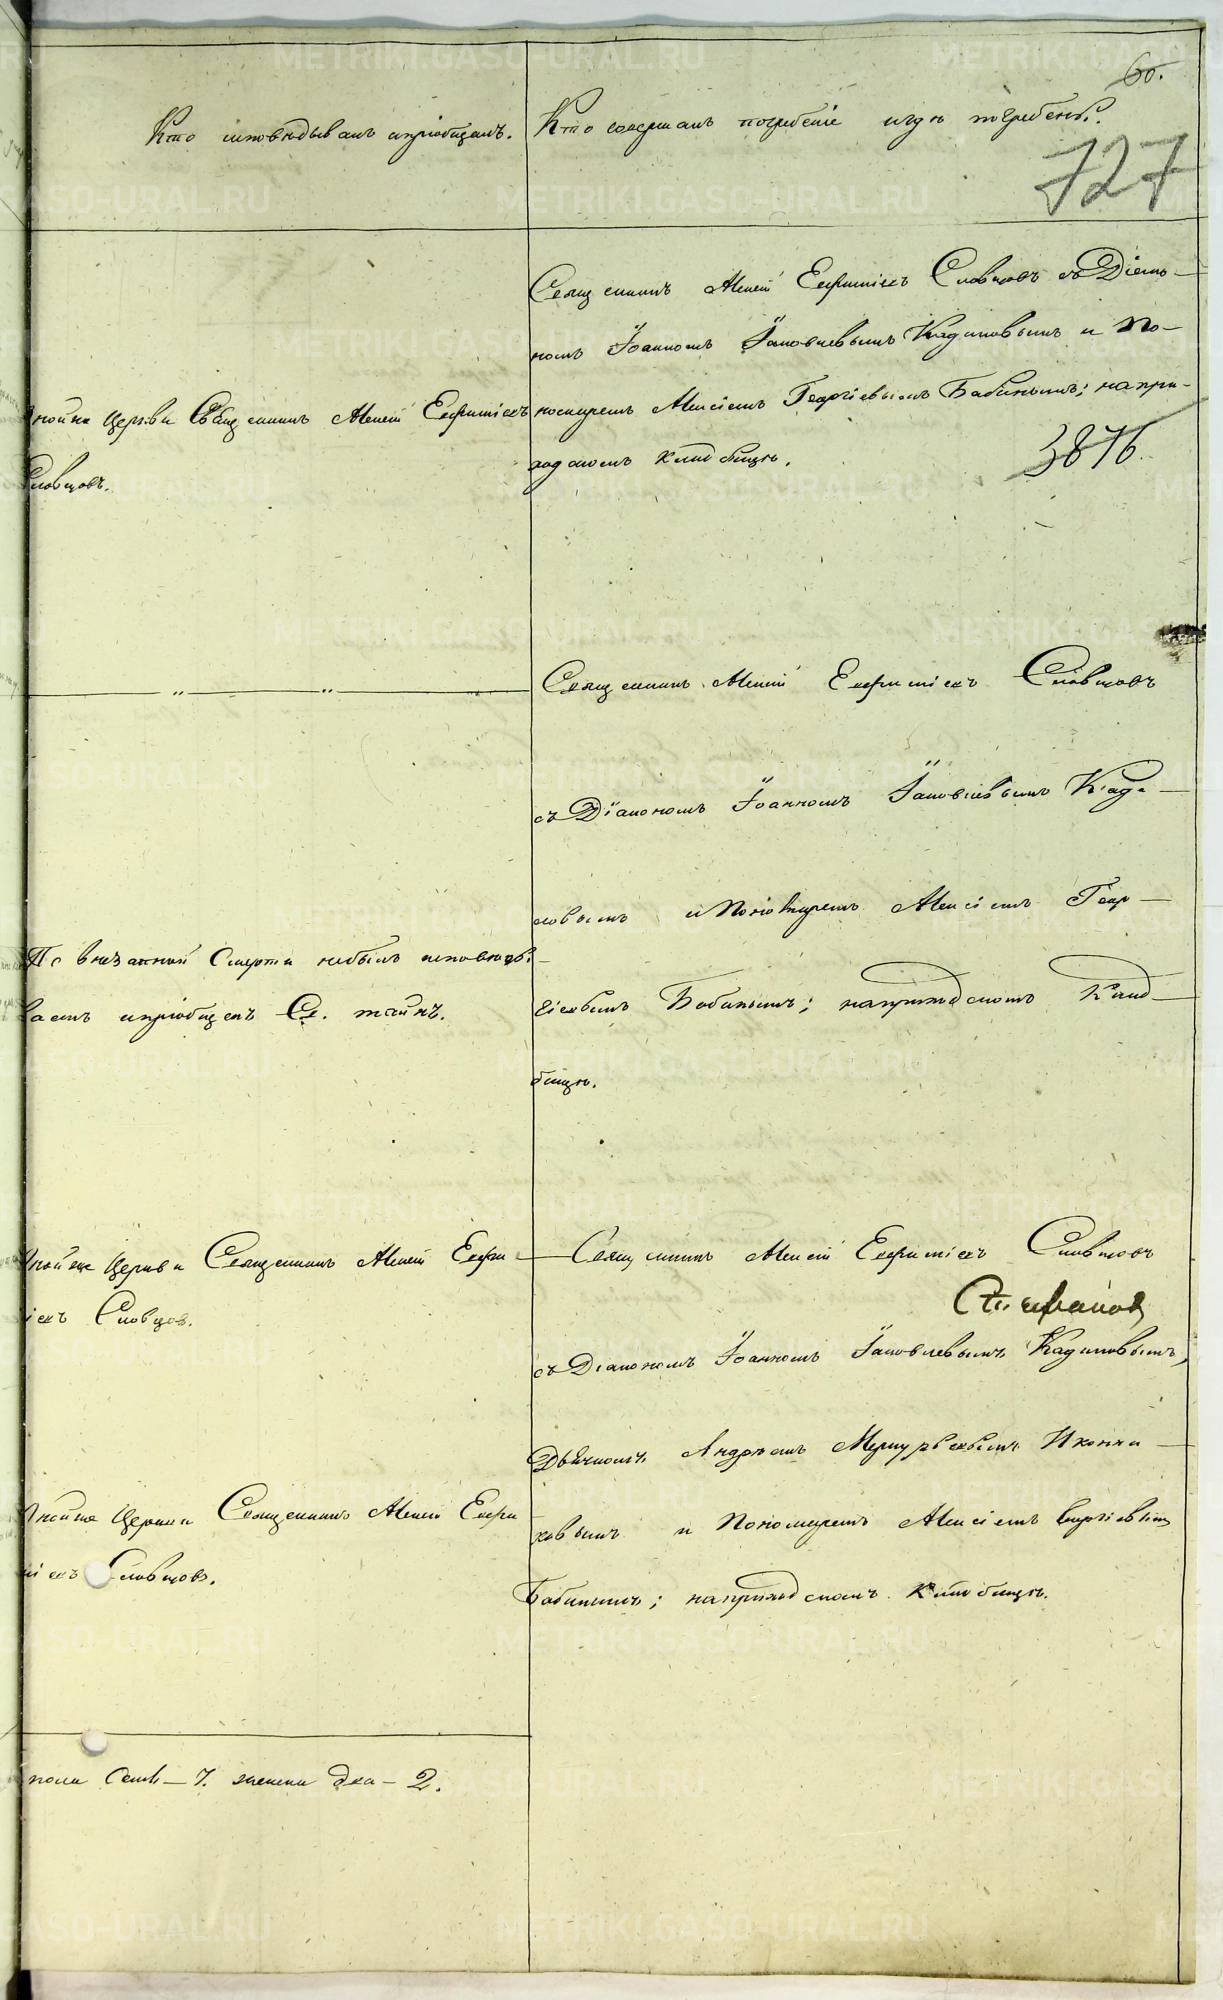 60.
Кто исповѣдывалъ и пріобщалъ.
Кто совершалъ погребеніе и гдѣ погребены.
727
Священникъ Алексій Евфиміевъ Словцовъ съ Діако-
номъ Іоанномъ Іаковлевымъ Кадиловымъ и По-
номаремъ Алексіемъ Георгіевымъ Бабинымъ; на при-
ходскомъ кладбищѣ.
3876
тойже Церкви Священникъ Алексій Евфиміевъ
Словцовъ.
Священникъ Алексій Евфиміевъ Словцовъ
съ Діакономъ Іоанномъ Іаковлевымъ Кади-
ловымъ и Пономаремъ Алексіемъ Геор-
гіевымъ Бабинымъ; на приходскомъ Клад-
бищѣ.
По внезапной Смерти небылъ исповѣдо-
ванъ и пріобщенъ Св. тайнъ.
тойже Церкви Священникъ Алексій Евфи-
іевъ Словцов.
Священникъ Алексій Евфиміевъ Словцовъ
Стефанов
съ Діакономъ Іоанномъ Іаковлевымъ Кадиловымъ,
Дьячкомъ Андреемъ Меркурьевымъ Иконни-
ковымъ и Пономаремъ Алексіемъ Георгіевымъ
Бабинымъ; на приходскомъ Кладбищѣ.
тойже Церкви Священникъ Алексій Евфи
міевъ Словцовъ.
пола Семь - 7. женска два - 2.
METRIKI.GASO-URAL.RU